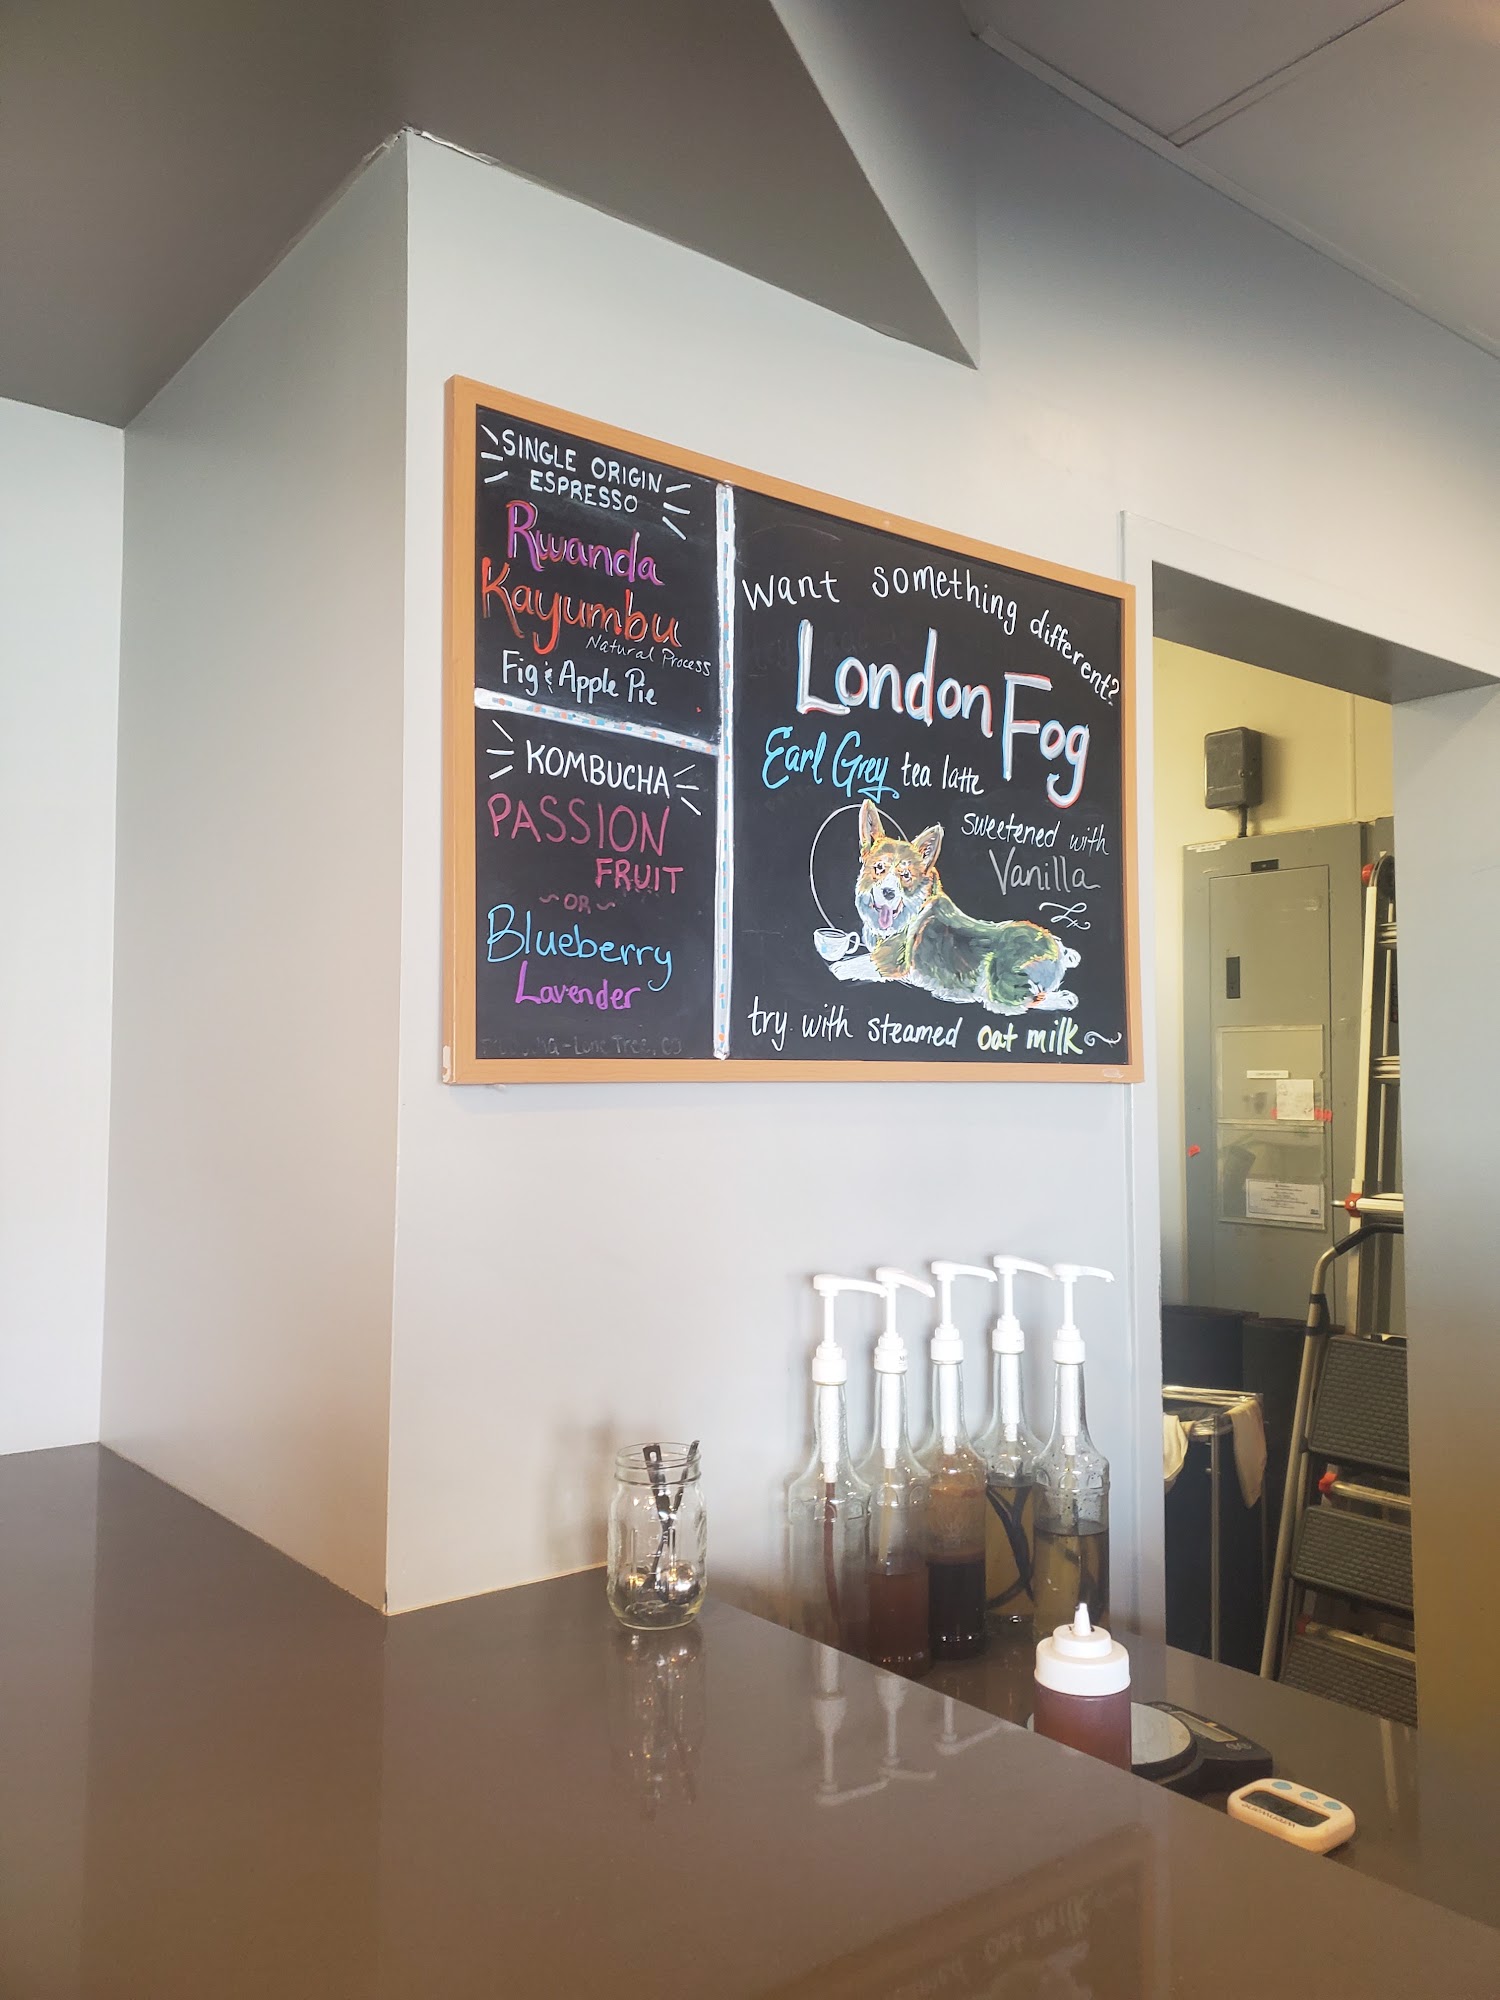 SINGLE ORIGIN
ESPRESSO
Rwanda
Kayumbu
Natural Process
Fig & Apple Pie
KOMBUCHA
PASSION
FRUIT
~OR~
Blueberry
Lavender
Lone Tree, CO
want something different?
London Fog
Earl Grey tea latte
sweetened with
Vanilla
try with steamed oat milk